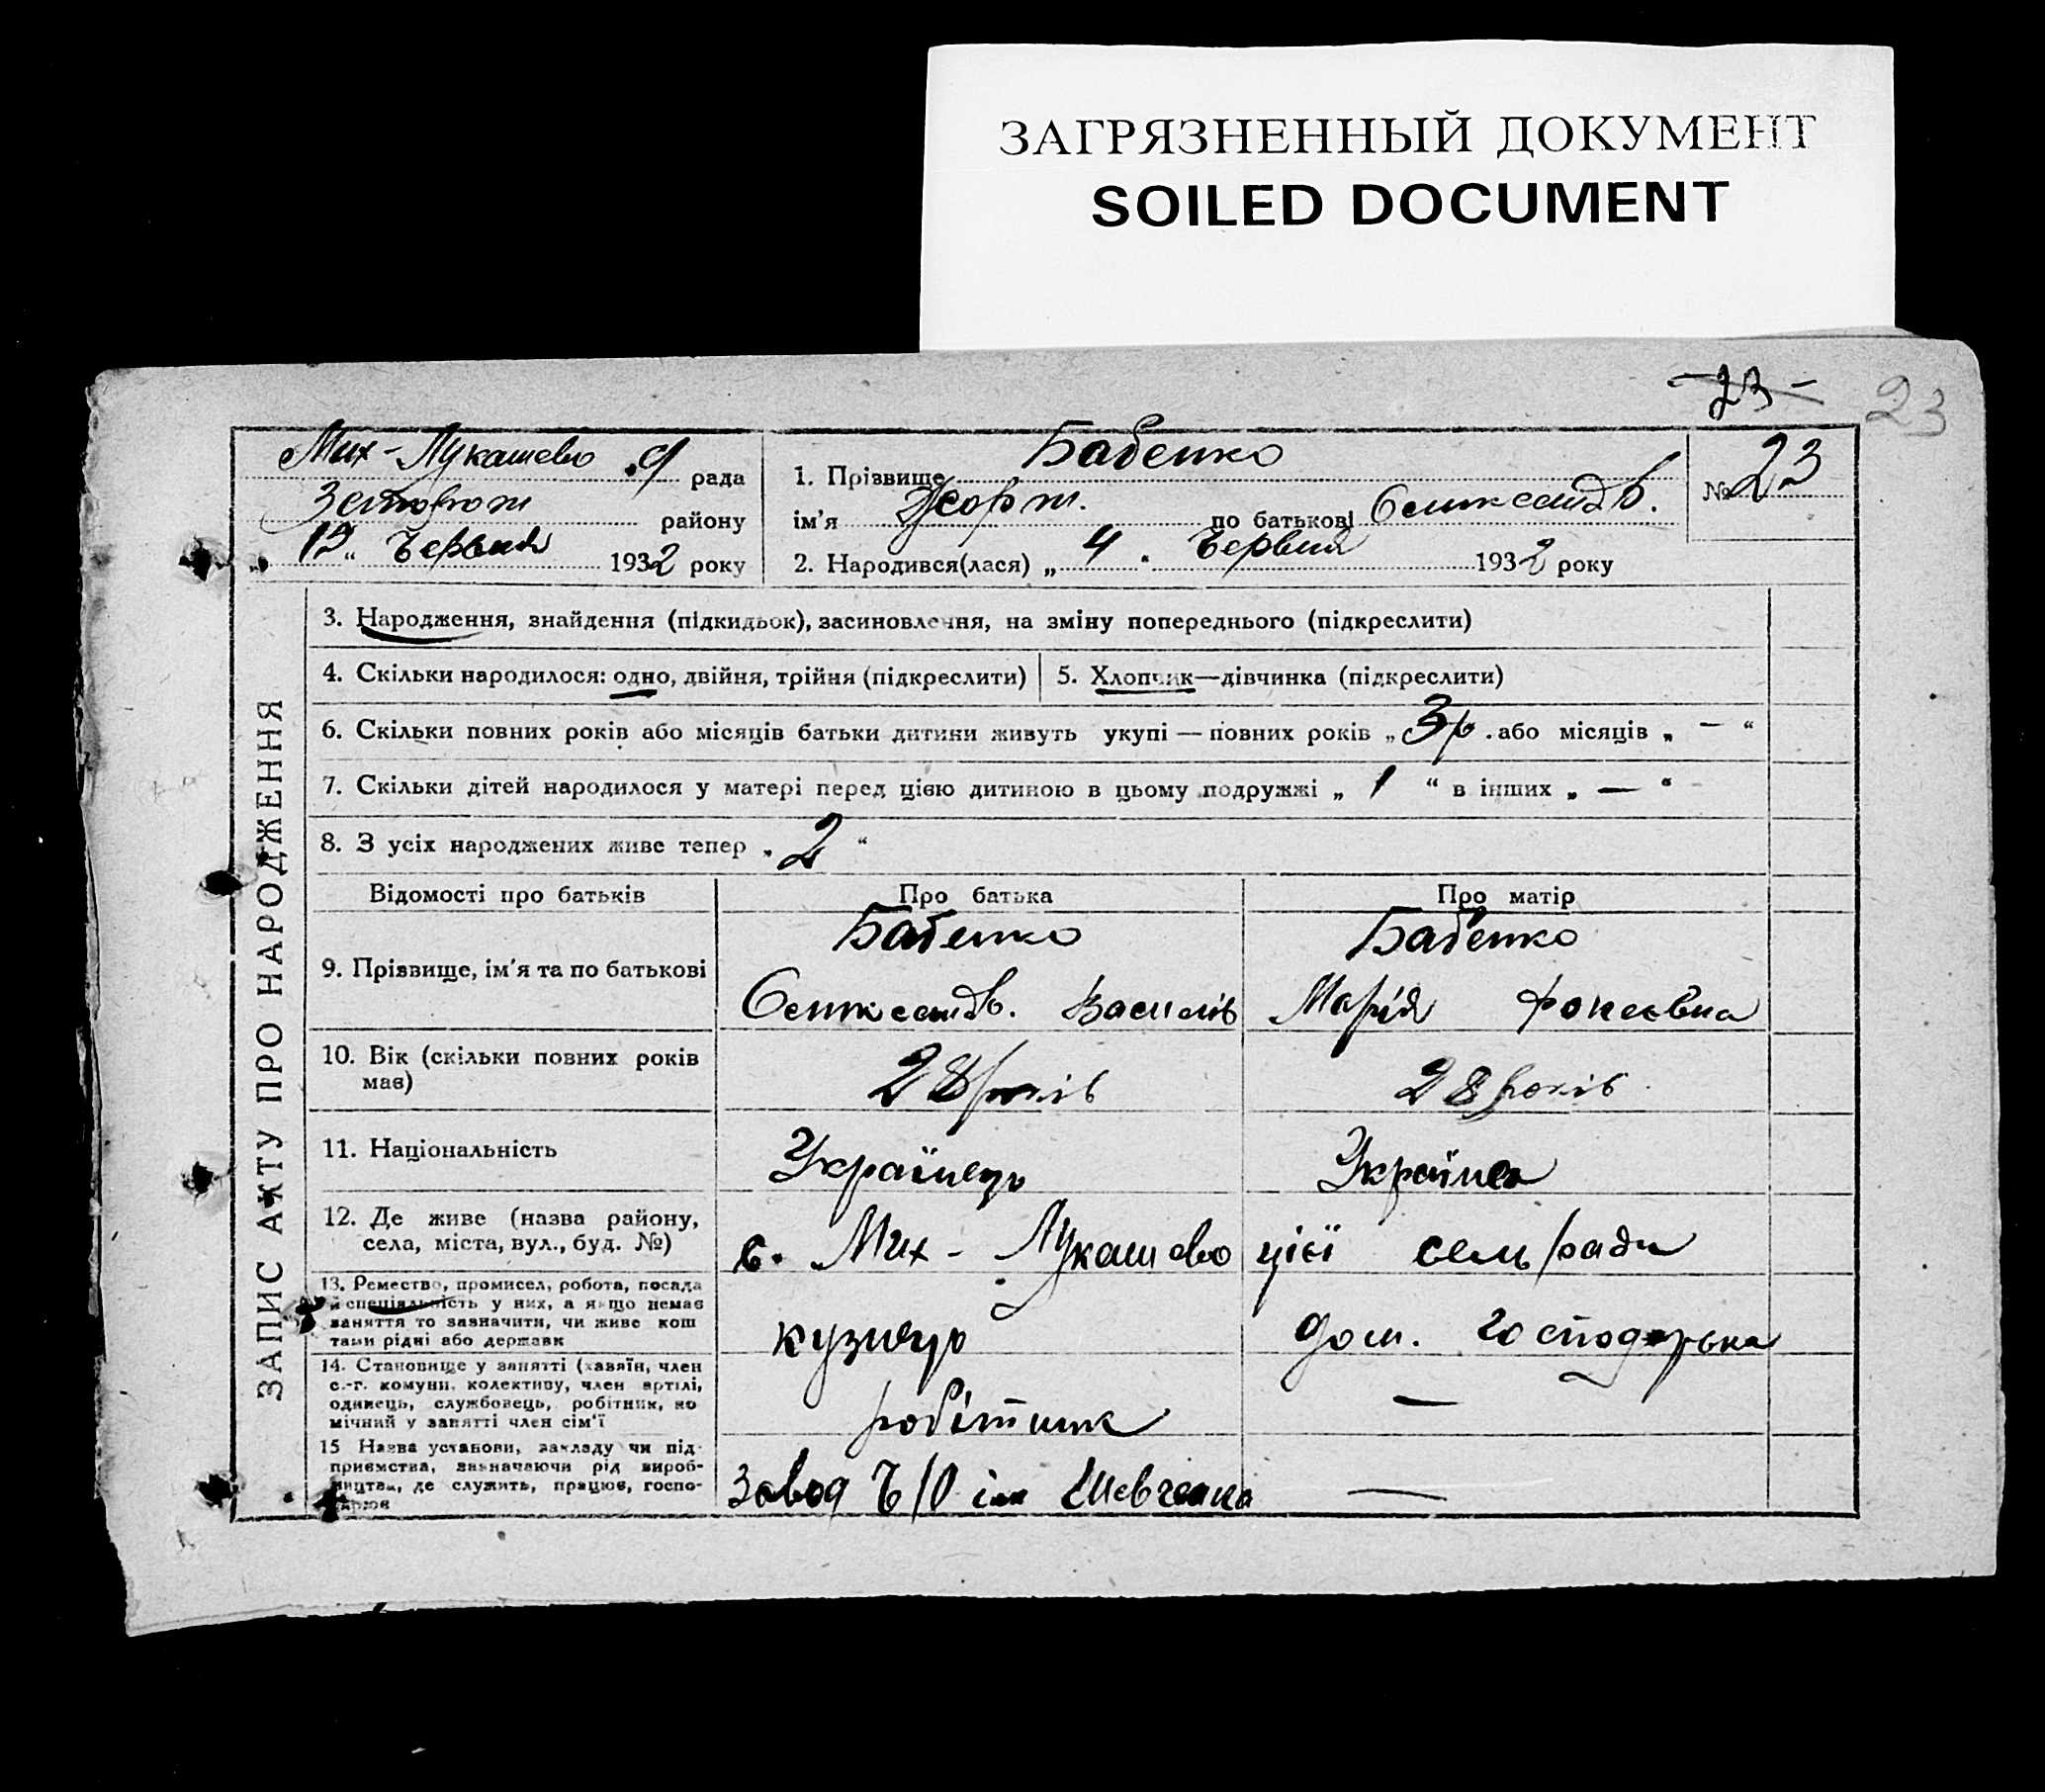 ЗАГРЯЗНЕННЫЙ ДОКУМЕНТ
SOILED DOCUMENT
-23-
23
Мих-Лукашево рада
району
12 " Червня 1932 року
1. Прізвище Бабенко
ім'я Жорж. по батькові
2. Народився(лася) „ 4 " Червня 1932 року
№ 23
ЗАПИС АКТУ ПРО НАРОДЖЕННЯ
3. Народження, знайдення (підкидьок), засиновлення, на зміну попереднього (підкреслити)
4. Скільки народилося: одно, двійня, трійня (підкреслити)
5. Хлопчик—дівчинка (підкреслити)
6. Скільки повних років або місяців батьки дитини живуть укупі — повних років „ 3 р. або місяців „ — “
7. Скільки дітей народилося у матері перед цією дитиною в цьому подружжі „ 1 “ в інших „ — “
8. З усіх народжених живе тепер „ 2 “
Відомості про батьків
Про батька
Про матір
9. Прізвище, ім'я та по батькові
Бабенко
Василів
Бабенко
Марія Фокеевна
10. Вік (скільки повних років
має)
28 років
28 років
11. Національність
Українець
Українка
12. Де живе (назва району,
села, міста, вул., буд. №)
с. Мих - Лукашево
цієї сельради
13. Ремество, промисел, робота, посада
й спеціяльність у них, а якщо немає
заняття то зазначити, чи живе кош
тами рідні або держави
кузнець
дом. господарька
14. Становище у занятті (хазяїн, член
с.-г. комуни, колективу, член артілі,
одинець, службовець, робітник, по
мічний у занятті член сім'ї
робітник
—
15 Назва установи, закладу чи під-
приємства, зазначаючи рід вироб-
ництва, де служить, працює, госпо-
завод Ч/О ім Шевченка
—